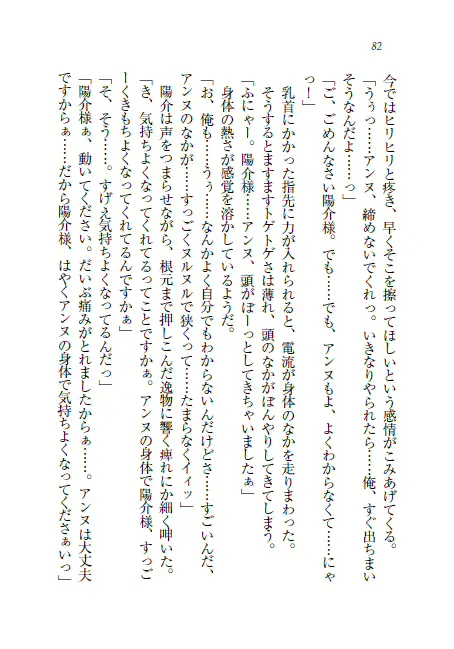 82
今ではヒリヒリと疼き、早くそこを擦ってほしいという感情がこみあげてくる。
「うぅっ……アンヌ、締めないでくれっ。いきなりやられたら……俺、すぐ出ちまい
そうなんだよ……っ」
「ご、ごめんなさい陽介様。でも……でも、アンヌもよ、よくわからなくて……にゃ
っ！」
乳首にかかった指先に力が入れられると、電流が身体のなかを走りまわった。
そうするとますますトゲトゲさは薄れ、頭のなかがぼんやりしてきてしまう。
「ふにゃー。陽介様……アンヌ、頭がぼーっとしてきちゃいましたぁ」
身体の熱さが感覚を溶かしているようだ。
「お、俺も……うぅ……なんかよく自分でもわからないんだけどさ……すごいんだ、
アンヌのなかが……すっごくヌルヌルで狭くって……たまらなくイイッ」
陽介は声をつまらせながら、根元まで押しこんだ逸物に響く痺れにか細く呻いた。
「き、気持ちよくなってくれてるってことですかぁ。アンヌの身体で陽介様、すっご
ーくきもちよくなってくれてるんですかぁ」
「そ、そう……。すげえ気持ちよくなってるんだっ」
「陽介様ぁ、動いてください。だいぶ痛みがとれましたからぁ……。アンヌは大丈夫
ですからぁ……だから陽介様、はやくアンヌの身体で気持ちよくなってくださぁいっ」